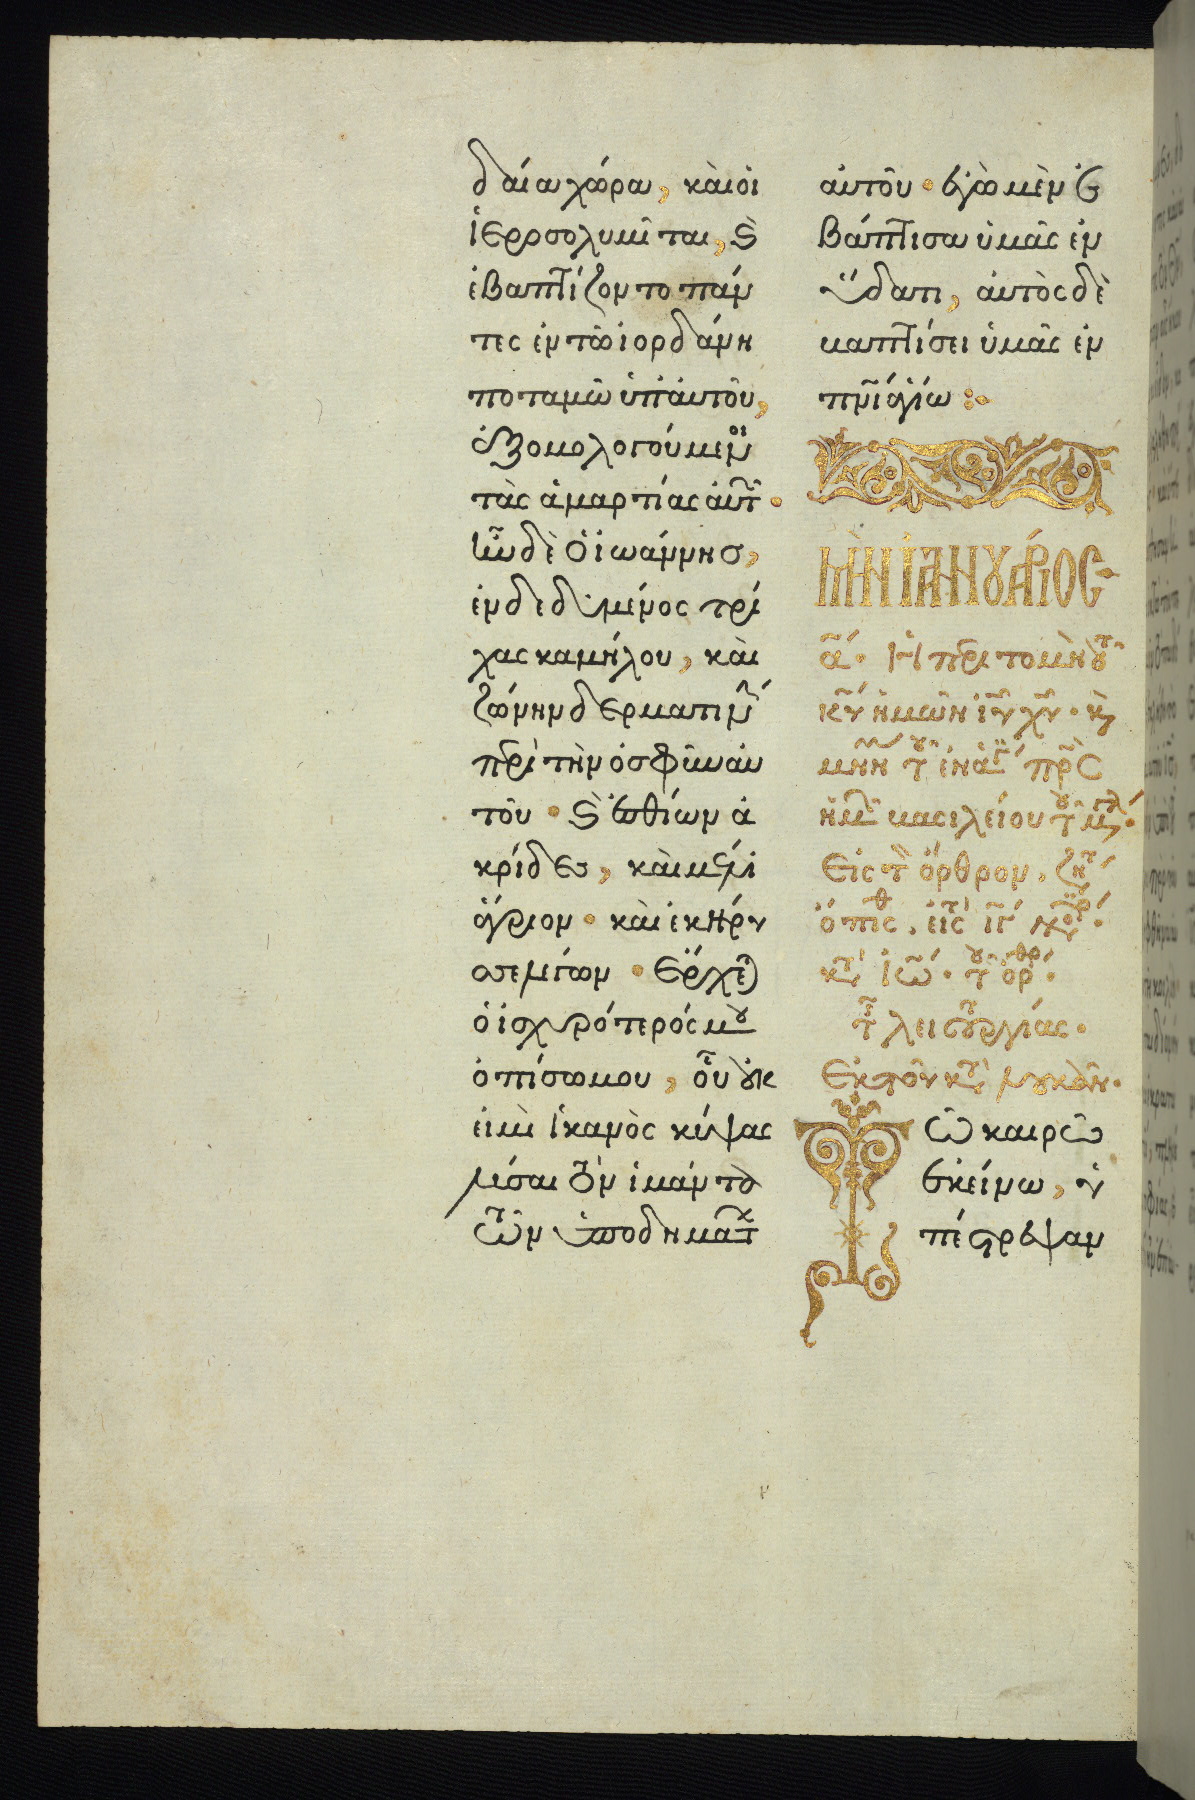 δαία χώρα, καὶ οἱ
ἱεροσολυμῖται, καὶ
ἐβαπτίζοντο πάν
τες ἐν τῶ ἰορδάνη
ποταμῶ ὑπ' αὐτοῦ,
ἐξομολογούμενοι
τὰς ἁμαρτίας αὐτῶν·
ἦν δὲ ὁ ἰωάννησ,
ἐνδεδυμένος τρί
χας καμήλου, καὶ
ζώνην δερματίνην
περὶ τὴν ὀσφῦν αὐ
τοῦ· καὶ ἐσθίων ἀ
κρίδεσ, καὶ μέλι
ἄγριον· καὶ ἐκήρυ
σσε λέγων· Ἔρχεται
ὁ ἰσχυρότερός μου
ὀπίσω μου, οὗ οὐκ
εἰμὶ ἱκανὸς κύψας
λύσαι τὸν ἱμάντα
τῶν ὑποδημάτων
αὐτοῦ· ἐγὼ μὲν ἐ
βάπτισα ὑμᾶς ἐν
ὕδατι, αὐτὸς δὲ
βαπτίσει ὑμᾶς ἐν
πνι ἁγίω :·
ΜΗΝ ΙΑΝΟΥΑΡΙΟΣ·
α· Ἡ περιτομὴ τοῦ
κυ ἡμῶν ιυ χυ· καὶ
μνήμη τοῦ ἐν ἁγίοις πρς
ἡμῶν βασιλείου τοῦ μεγάλου·
Εἰς τὸν ὄρθρον, ζήτει
Ἐκ τοῦ κατὰ λουκᾶν·
Τῶ καιρῶ
ἐκείνω, ὑ
πέστρεψαν